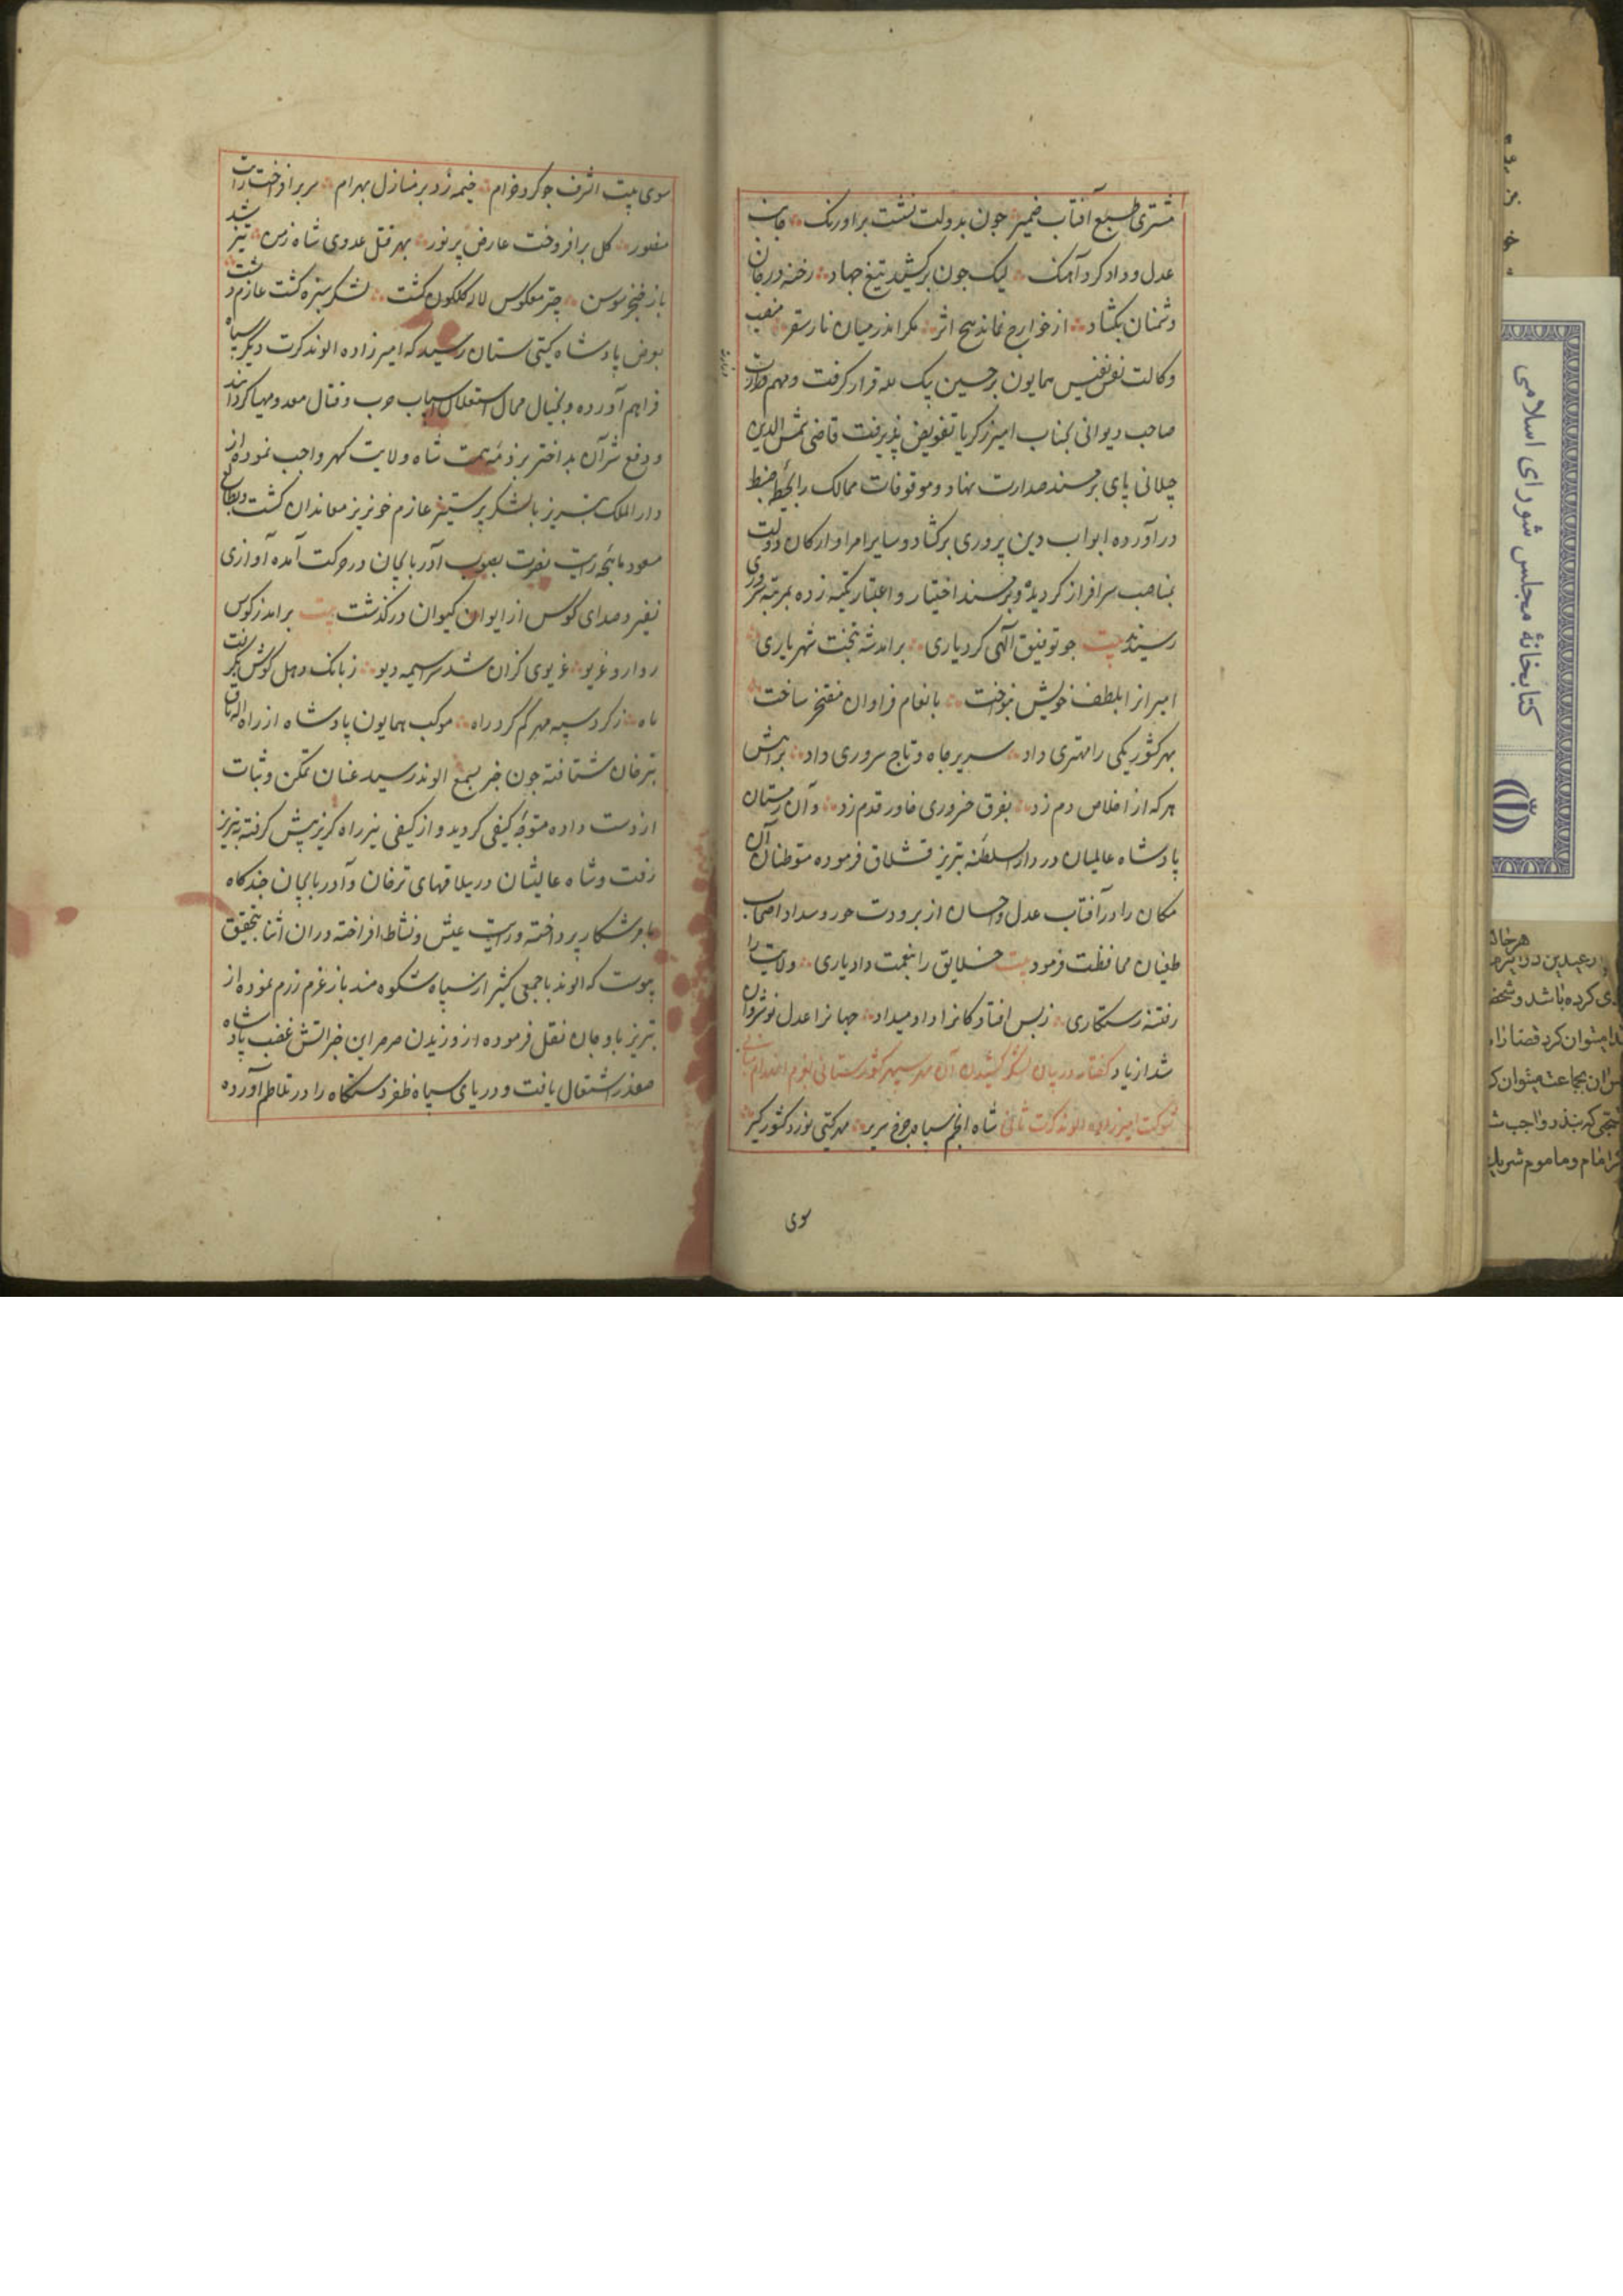 مشتری طبع آفتاب ضمیر جون بدولت نشست بر اورنک جانب
عدل و داد کرد آهنک لیک جون برکشید تیغ جهاد رخنه در جان
دشمنان بکشاد از خوارج نماند هیچ اثر مکر اندر میان نار سقر منصب
وکالت نفس نفیس همایون بر حسین بیک لله قرار کرفت و مهم وزارت
صاحب دیوانی بجناب امیر زکریا تفویض پذیرفت قاضی شمس الدین
جیلانی پای بر مسند صدارت نهاد و موقوفات ممالک را بحیطه ضبط
درآورده ابواب دین پروری برکشاد و سایر امرا و ارکان دولت
بمناصب سرافراز کردیده و بر مسند اختیار و اعتبار تکیه زده بمرتبه سروری
رسیدند بیت جو توفیق آلهی کرد یاری برآمد شه بتخت شهریاری
امیرانرا بلطف خویش بنواخت بانعام فراوان مفتخر ساخت
بهر کشور یکی را مهتری داد سریر جاه و تاج سروری داد براهش
هر که از اخلاص دم زد بفرق خسروی خاور قدم زد و آن زمستان
پادشاه عالمیان در دار السلطنه تبریز قشلاق فرموده متوطنان آن
مکان را در آفتاب عدل و احسان از برودت جور و سداد اصحاب
طغیان محافظت فرمود بیت خلایق را بنعمت داد یاری ولایت را
ز فتنه رستکاری ز بس افتادکانرا داد میداد جهانرا عدل نوشروان
شد از یاد کفتار در بیان لشکر کشیدن آن مهر سپهر کشورستانی بعزم انهدام مبانی
شوکت امیرزاده الوند کرت ثانی شاه انجم سپاه چرخ سریر مهر کیتی نورد کشورکیر
سوی
سوی بیت الشرف جو کرد خرام خیمه زد بر منازل بهرام سر برافراخت رایت
منصور کل برافروخت عارض پر نور بهر قتل عدوی شاه زمن تیز شد
باز خنجر سوسن چتر معکوس لاله کلکون کشت لشکر سبزه کشت عازم دشت
بعرض پادشاه کیتی ستان رسید که امیرزاده الوند کرت دیکر سپاه
فراهم آورده و بخیال محال استقلال اسباب حرب و قتال معد و مهیا کردانید
و دفع شر آن بد اختر بر ذمه همت شاه ولایت کهر واجب نموده از
دار الملک تبریز با لشکر پر ستیز عازم خونریز معاندان کشت و بطالع
مسعود ماهچه رایت نصرت بصوب آذربایجان در حرکت آمده آوازی
نفیر و صدای کوس از ایوان کیوان درکذشت بیت برآمد ز کوس
روارو غریو غریوی کزان شد سراسیمه دیو ز بانک دهل کوش کر کرفت
ماه ز کرد سپه مهر کم کرد راه موکب همایون پادشاه از راه الاتاق
بترجان شتافته جون خبر بسمع الوند رسید عنان تمکن و ثبات
از دست داده متوجه کیفی کردید و از کیفی نیز راه کریز پیش کرفته به تبریز
رفت و شاه عالیشان در ییلاقهای ترجان و آذربایجان جندکاه
بامر شکار پرداخته و رایت عیش و نشاط افراخته دران اثنا بتحقیق
پیوست که الوند با جمعی کثیر از سپاه شکوه مند باز عزم رزم نموده از
تبریز باوجان نقل فرموده از وزیدن صرصر این خبر آتش غضب پادشاه
صفدر اشتعال یافت و دریای سپاه ظفر دستکاه را در تلاطم آورده
کتابخانهٔ مجلس شورای اسلامی